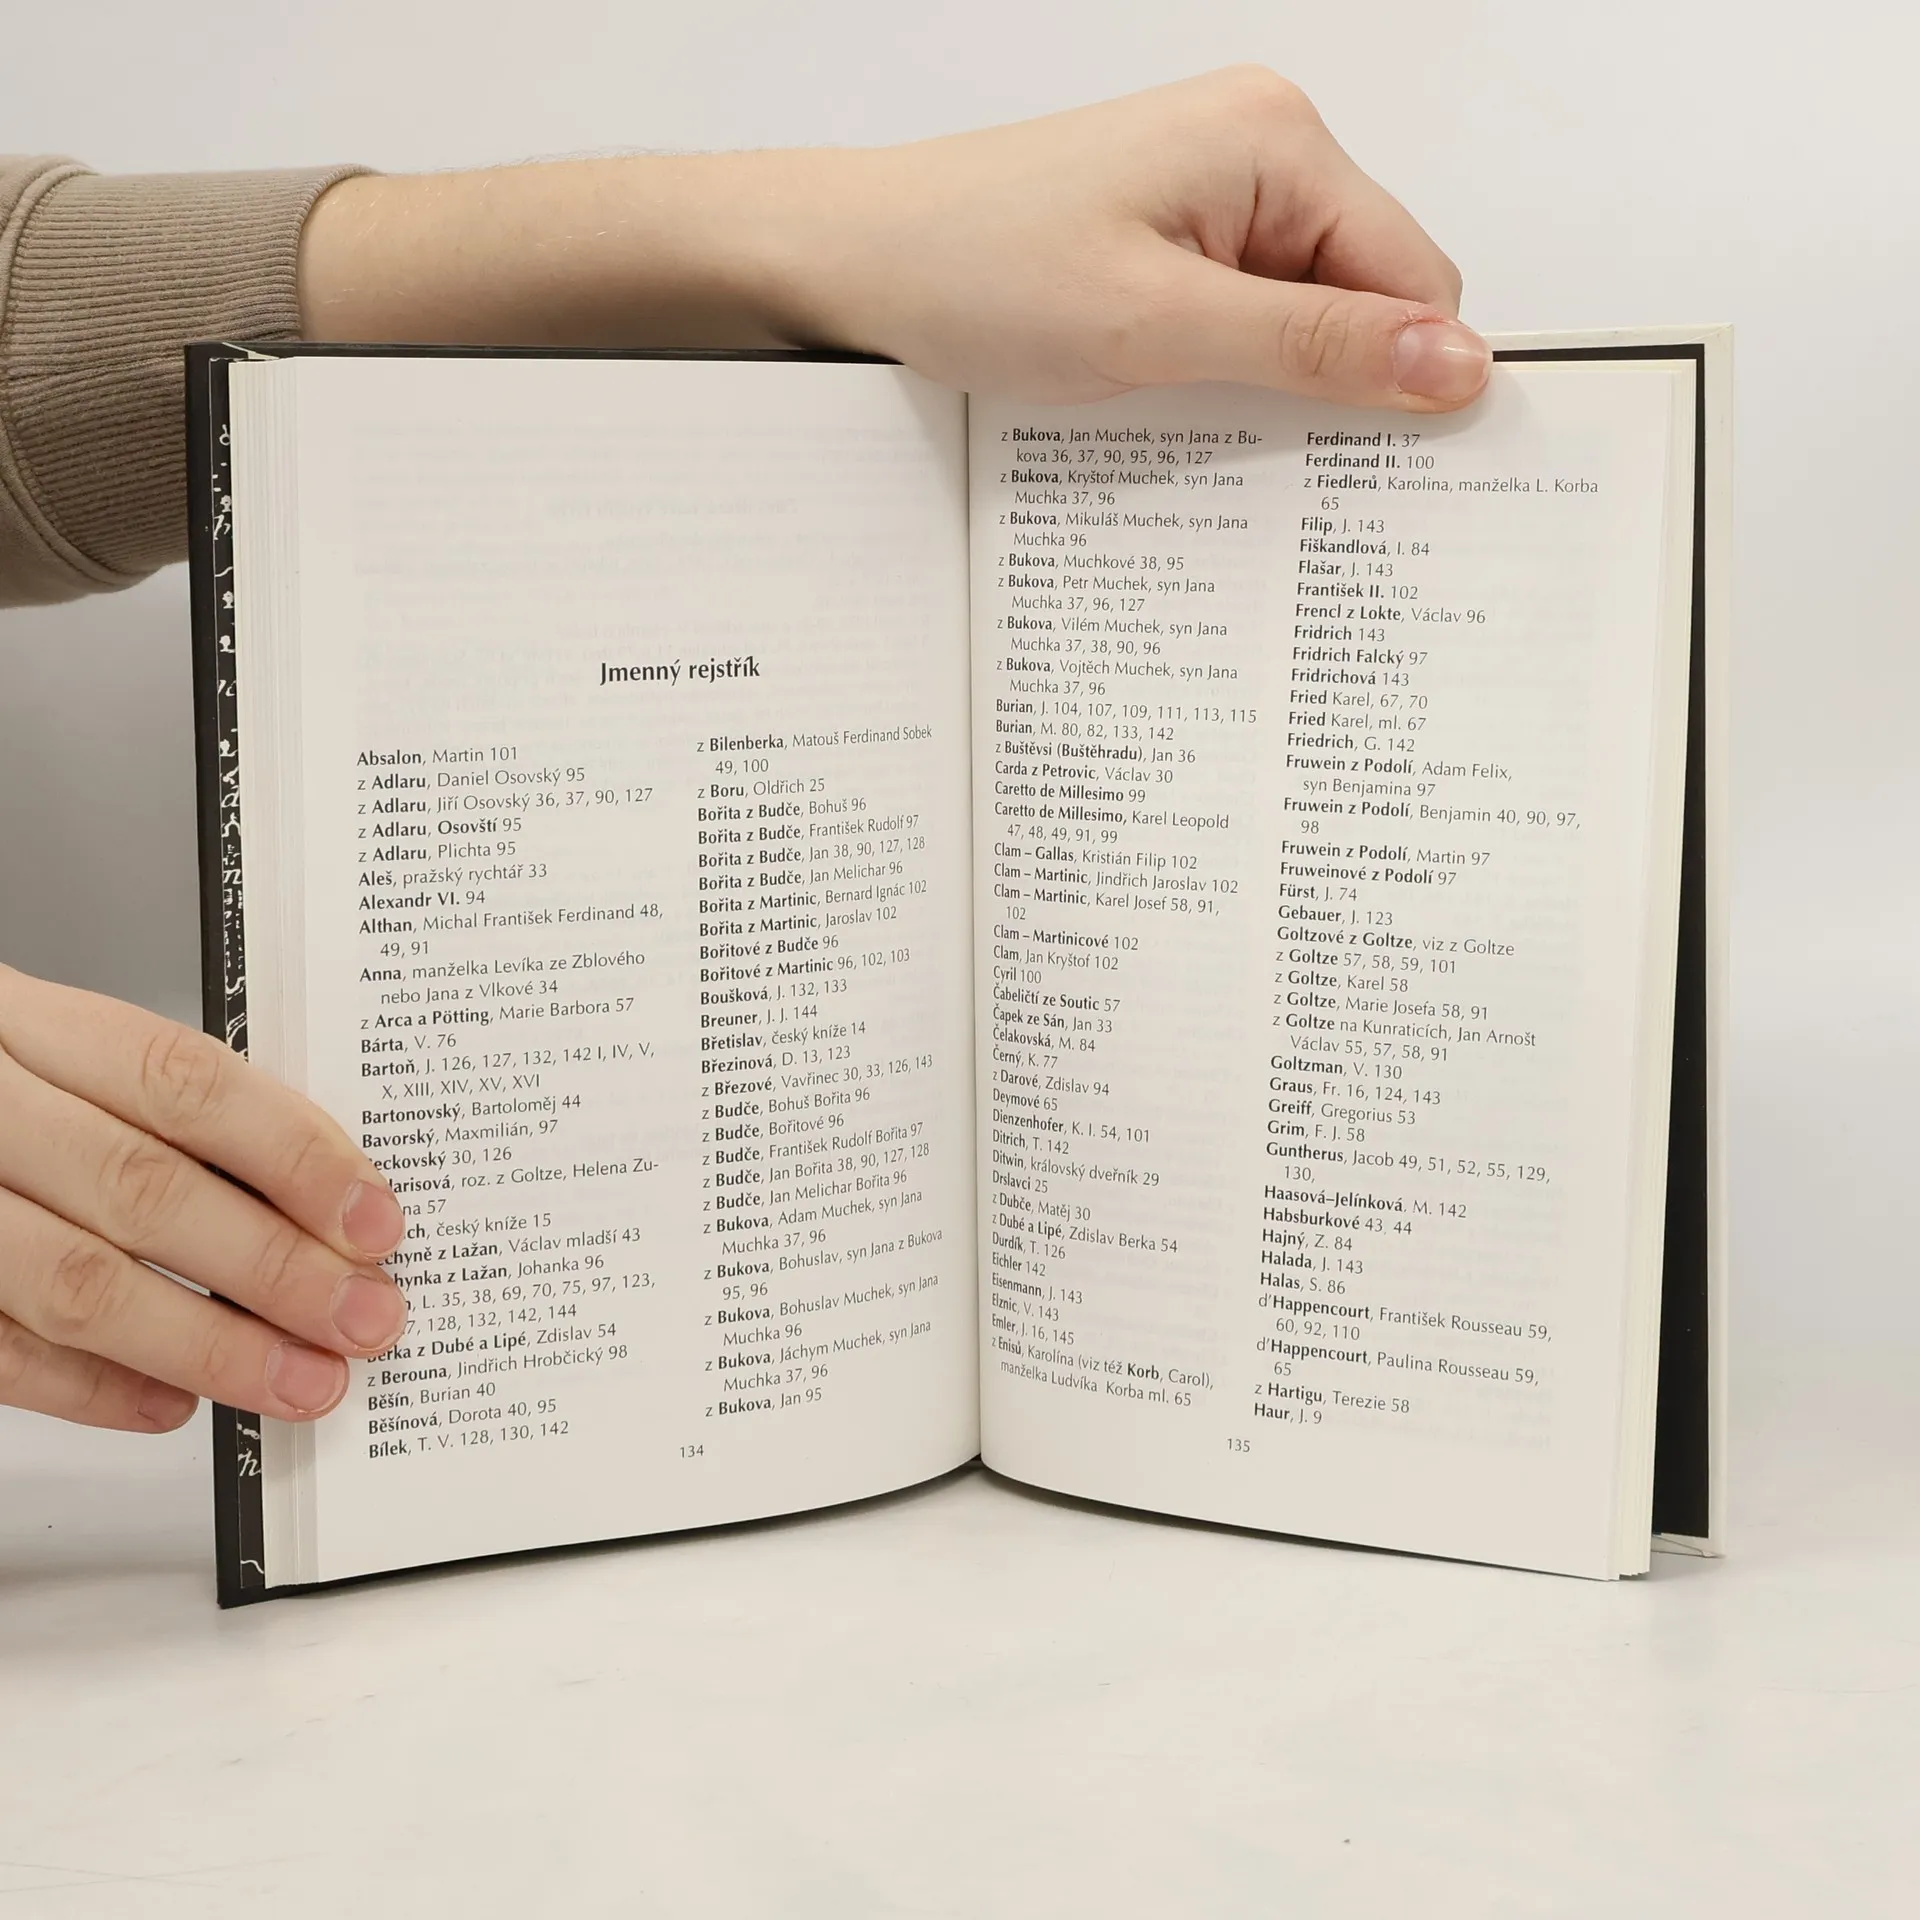 Jmenný rejstřík
Absalon, Martin 101
z Adlaru, Daniel Osovský 95
z Adlaru, Jiří Osovský 36, 37, 90, 127
z Adlaru, Osovští 95
z Adlaru, Plichta 95
Aleš, pražský rychtář 33
Alexandr VI. 94
Althan, Michal František Ferdinand 48,
49, 91
Anna, manželka Levíka ze Zblového
nebo Jana z Vlkové 34
z Arca a Pötting, Marie Barbora 57
Bárta, V. 76
Bartoň, J. 126, 127, 132, 142 I, IV, V,
X, XIII, XIV, XV, XVI
Bartonovský, Bartoloměj 44
Bavorský, Maxmilián, 97
eckovský 30, 126
larisová, roz. z Goltze, Helena Zu-
na 57
ich, český kníže 15
echyně z Lažan, Václav mladší 43
hynka z Lažan, Johanka 96
n, L. 35, 38, 69, 70, 75, 97, 123,
7, 128, 132, 142, 144
Berka z Dubé a Lipé, Zdislav 54
z Berouna, Jindřich Hrobčický 98
Běšín, Burian 40
Běšínová, Dorota 40, 95
Bílek, T. V. 128, 130, 142
z Bilenberka, Matouš Ferdinand Sobek
49, 100
z Boru, Oldřich 25
Bořita z Budče, Bohuš 96
Bořita z Budče, František Rudolf 97
Bořita z Budče, Jan 38, 90, 127, 128
Bořita z Budče, Jan Melichar 96
Bořita z Martinic, Bernard Ignác 102
Bořita z Martinic, Jaroslav 102
Bořitové z Budče 96
Bořitové z Martinic 96, 102, 103
Boušková, J. 132, 133
Breuner, J. J. 144
Břetislav, český kníže 14
Březinová, D. 13, 123
z Březové, Vavřinec 30, 33, 126, 143
z Budče, Bohuš Bořita 96
z Budče, Bořitové 96
z Budče, František Rudolf Bořita 97
z Budče, Jan Bořita 38, 90, 127, 128
z Budče, Jan Melichar Bořita 96
z Bukova, Adam Muchek, syn Jana
Muchka 37, 96
z Bukova, Bohuslav, syn Jana z Bukova
95, 96
z Bukova, Bohuslav Muchek, syn Jana
Muchka 96
z Bukova, Jáchym Muchek, syn Jana
Muchka 37, 96
z Bukova, Jan 95
134
z Bukova, Jan Muchek, syn Jana z Bu-
kova 36, 37, 90, 95, 96, 127
z Bukova, Kryštof Muchek, syn Jana
Muchka 37, 96
z Bukova, Mikuláš Muchek, syn Jana
Muchka 96
z Bukova, Muchkové 38, 95
z Bukova, Petr Muchek, syn Jana
Muchka 37, 96, 127
z Bukova, Vilém Muchek, syn Jana
Muchka 37, 38, 90, 96
z Bukova, Vojtěch Muchek, syn Jana
Muchka 37, 96
Burian, J. 104, 107, 109, 111, 113, 115
Burian, M. 80, 82, 133, 142
z Buštěvsi (Buštěhradu), Jan 36
Carda z Petrovic, Václav 30
Caretto de Millesimo 99
Caretto de Millesimo, Karel Leopold
47, 48, 49, 91, 99
Clam – Gallas, Kristián Filip 102
Clam – Martinic, Jindřich Jaroslav 102
Clam – Martinic, Karel Josef 58, 91,
102
Clam – Martinicové 102
Clam, Jan Kryštof 102
Cyril 100
Čabeličtí ze Soutic 57
Čapek ze Sán, Jan 33
Čelakovská, M. 84
Černý, K. 77
z Darové, Zdislav 94
Deymové 65
Dienzenhofer, K. I. 54, 101
Ditrich, T. 142
Ditwin, královský dveřník 29
Drslavci 25
z Dubče, Matěj 30
z Dubé a Lipé, Zdislav Berka 54
Durdík, T. 126
Eichler 142
Eisenmann, J. 143
Elznic, V. 143
Emler, J. 16, 145
z Enisů, Karolína (viz též Korb, Carol),
manželka Ludvíka Korba ml. 65
Ferdinand I. 37
Ferdinand II. 100
z Fiedlerů, Karolina, manželka L. Korba
65
Filip, J. 143
Fiškandlová, I. 84
Flašar, J. 143
František II. 102
Frencl z Lokte, Václav 96
Fridrich 143
Fridrich Falcký 97
Fridrichová 143
Fried Karel, 67, 70
Fried Karel, ml. 67
Friedrich, G. 142
Fruwein z Podolí, Adam Felix,
syn Benjamina 97
Fruwein z Podolí, Benjamin 40, 90, 97,
98
Fruwein z Podolí, Martin 97
Fruweinové z Podolí 97
Fürst, J. 74
Gebauer, J. 123
Goltzové z Goltze, viz z Goltze
z Goltze 57, 58, 59, 101
z Goltze, Karel 58
z Goltze, Marie Josefa 58, 91
z Goltze na Kunraticích, Jan Arnošt
Václav 55, 57, 58, 91
Goltzman, V. 130
Graus, Fr. 16, 124, 143
Greiff, Gregorius 53
Grim, F. J. 58
Guntherus, Jacob 49, 51, 52, 55, 129,
130,
Haasová–Jelínková, M. 142
Habsburkové 43, 44
Hajný, Z. 84
Halada, J. 143
Halas, S. 86
d'Happencourt, František Rousseau 59,
60, 92, 110
d'Happencourt, Paulina Rousseau 59,
65
z Hartigu, Terezie 58
Haur, J. 9
135